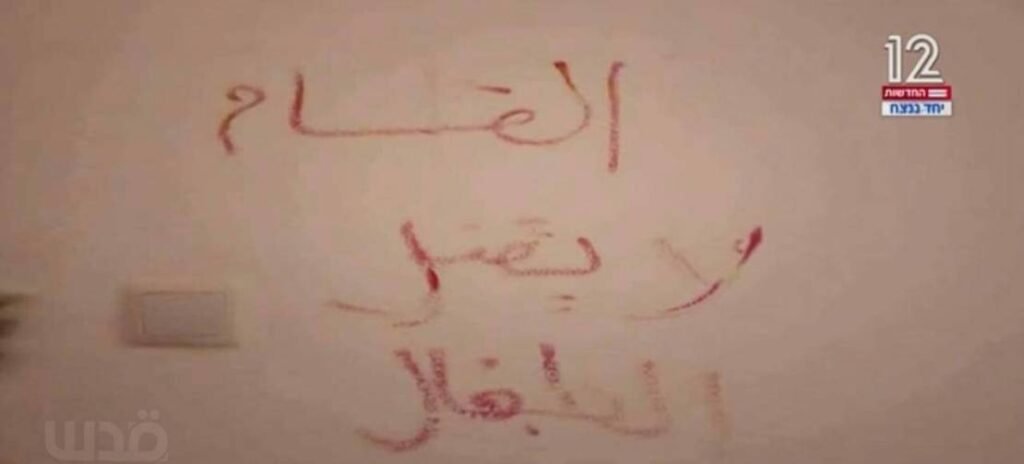 القسام
لا يقتل
الأطفال
12
החדשות
יחד ננצח
قدس